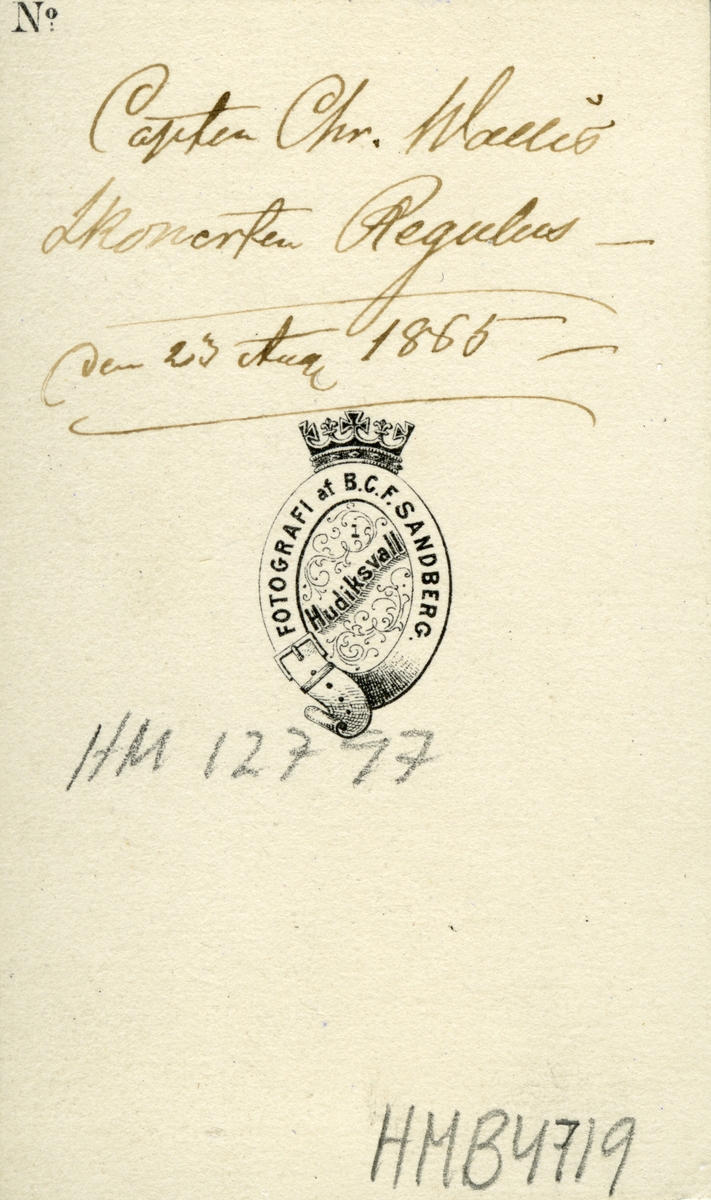 No:
Capten Chr. Wallis
Skonerten Regulus —
den 23 Aug 1865 —
FOTOGRAFI af B.C.F. SANDBERG.
i
Hudiksvall
HM 12797
HMB4719